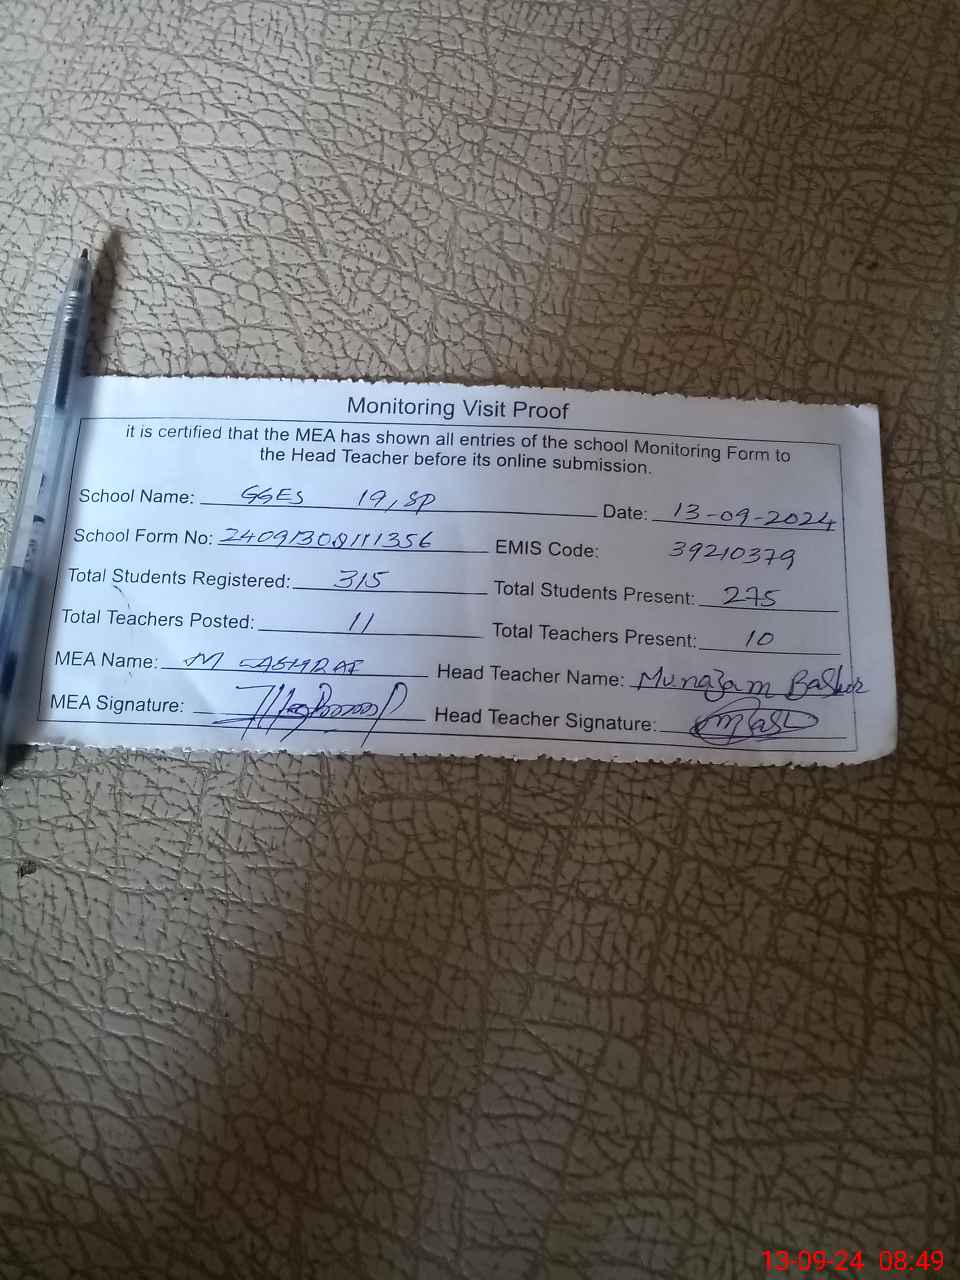 Monitoring Visit Proof
it is certified that the MEA has shown all entries of the school Monitoring Form to
the Head Teacher before its online submission.
School Name: GGES 19, SP Date: 13-09-2024
School Form No: EMIS Code: 39210379
Total Students Registered: 315 Total Students Present: 275
Total Teachers Posted: 11 Total Teachers Present: 10
MEA Name: M ASHRAF Head Teacher Name: Munazam Bashir
MEA Signature: Head Teacher Signature:
13-09-24 08:49